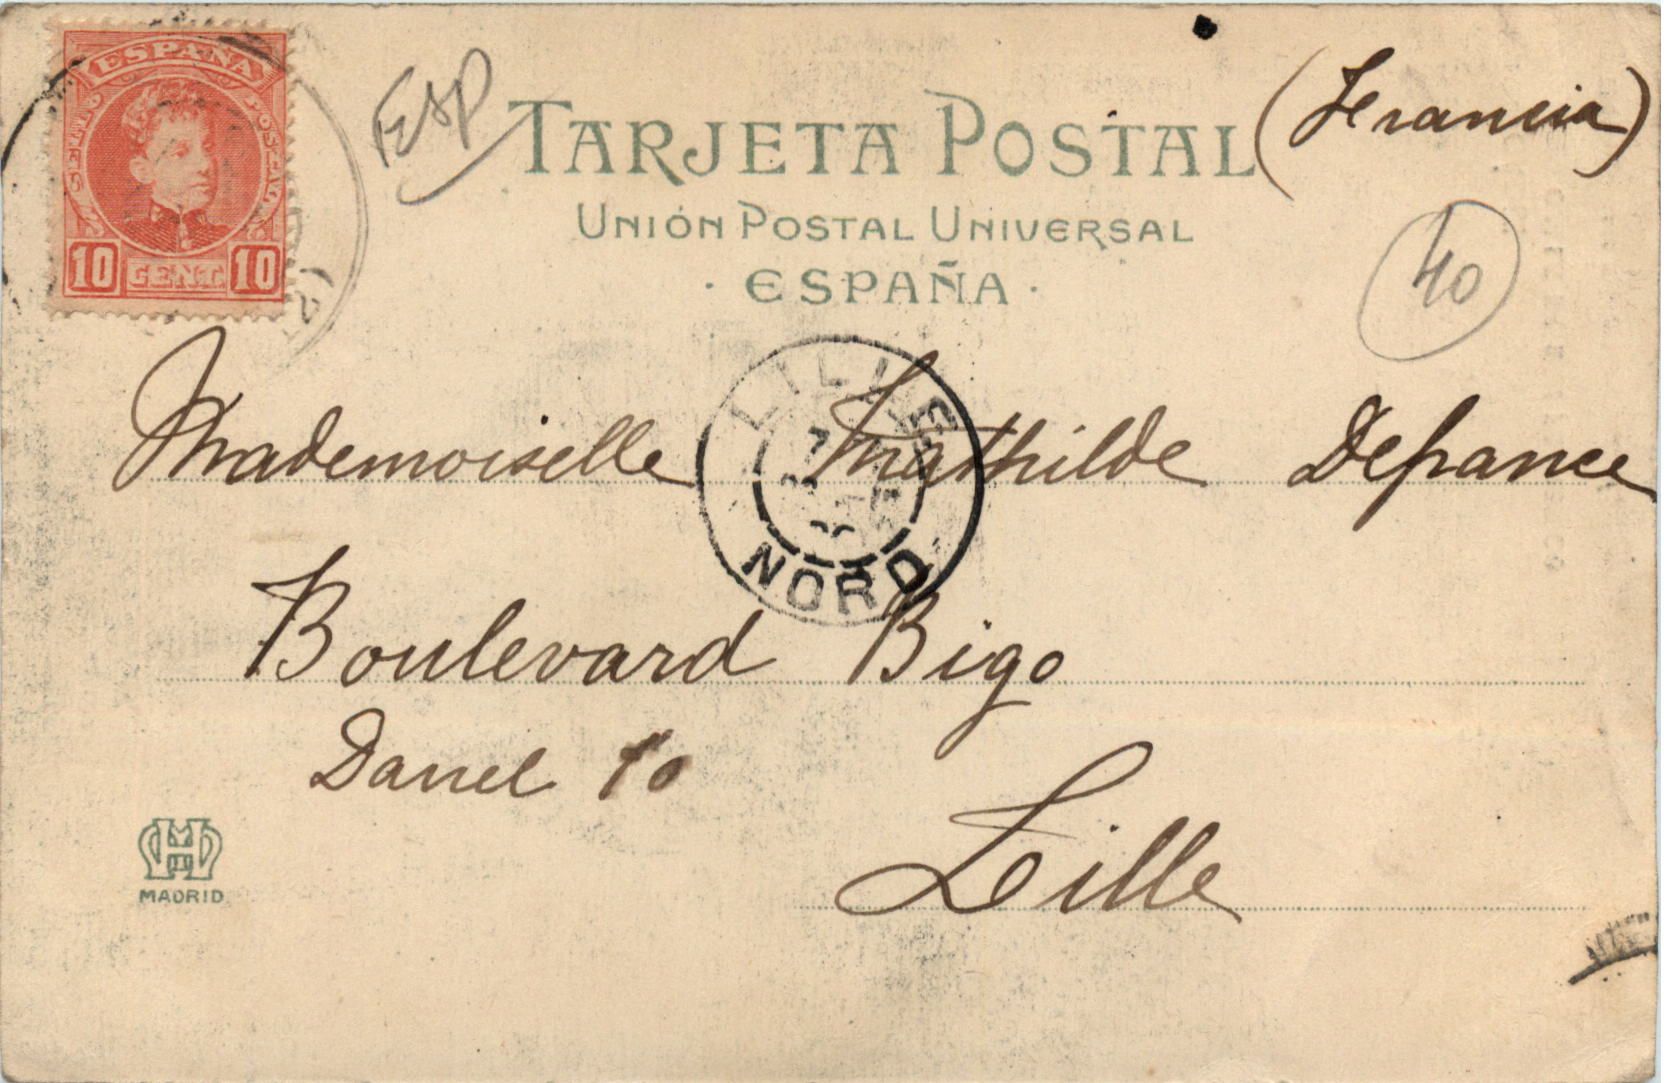 ESPAÑA
10 CENT. 10
Esp
TARJETA POSTAL
(Francia)
UNIÓN POSTAL UNIVERSAL
· ESPAÑA ·
40
LILLE
NORD
Mademoiselle Mathilde Defrance
Boulevard Bigo
Danel 10
Lille
MADRID